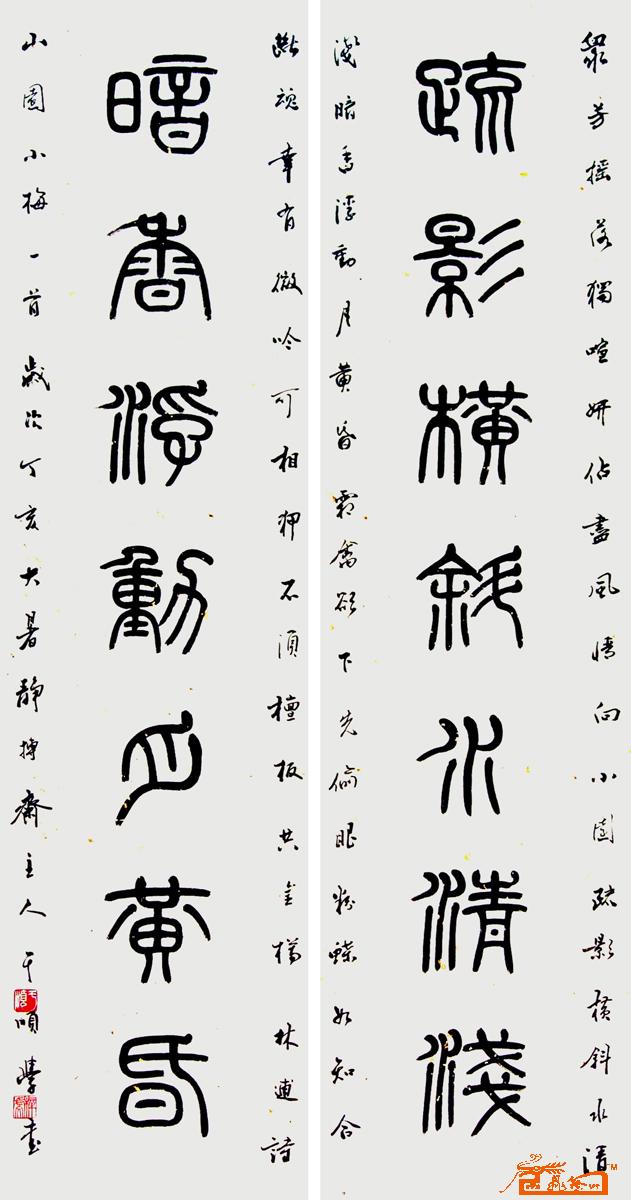 眾芳搖落獨喧妍佔盡風情向小園疏影橫斜水清
疏影橫斜水清淺
淺暗香浮動月黃昏霜禽欲下先偷眼粉蝶如知合
斷魂幸有微吟可相狎不須檀板共金樽 林逋詩
暗香浮動月黃昏
山園小梅一首歲次丁亥大暑靜齋主人于順學書